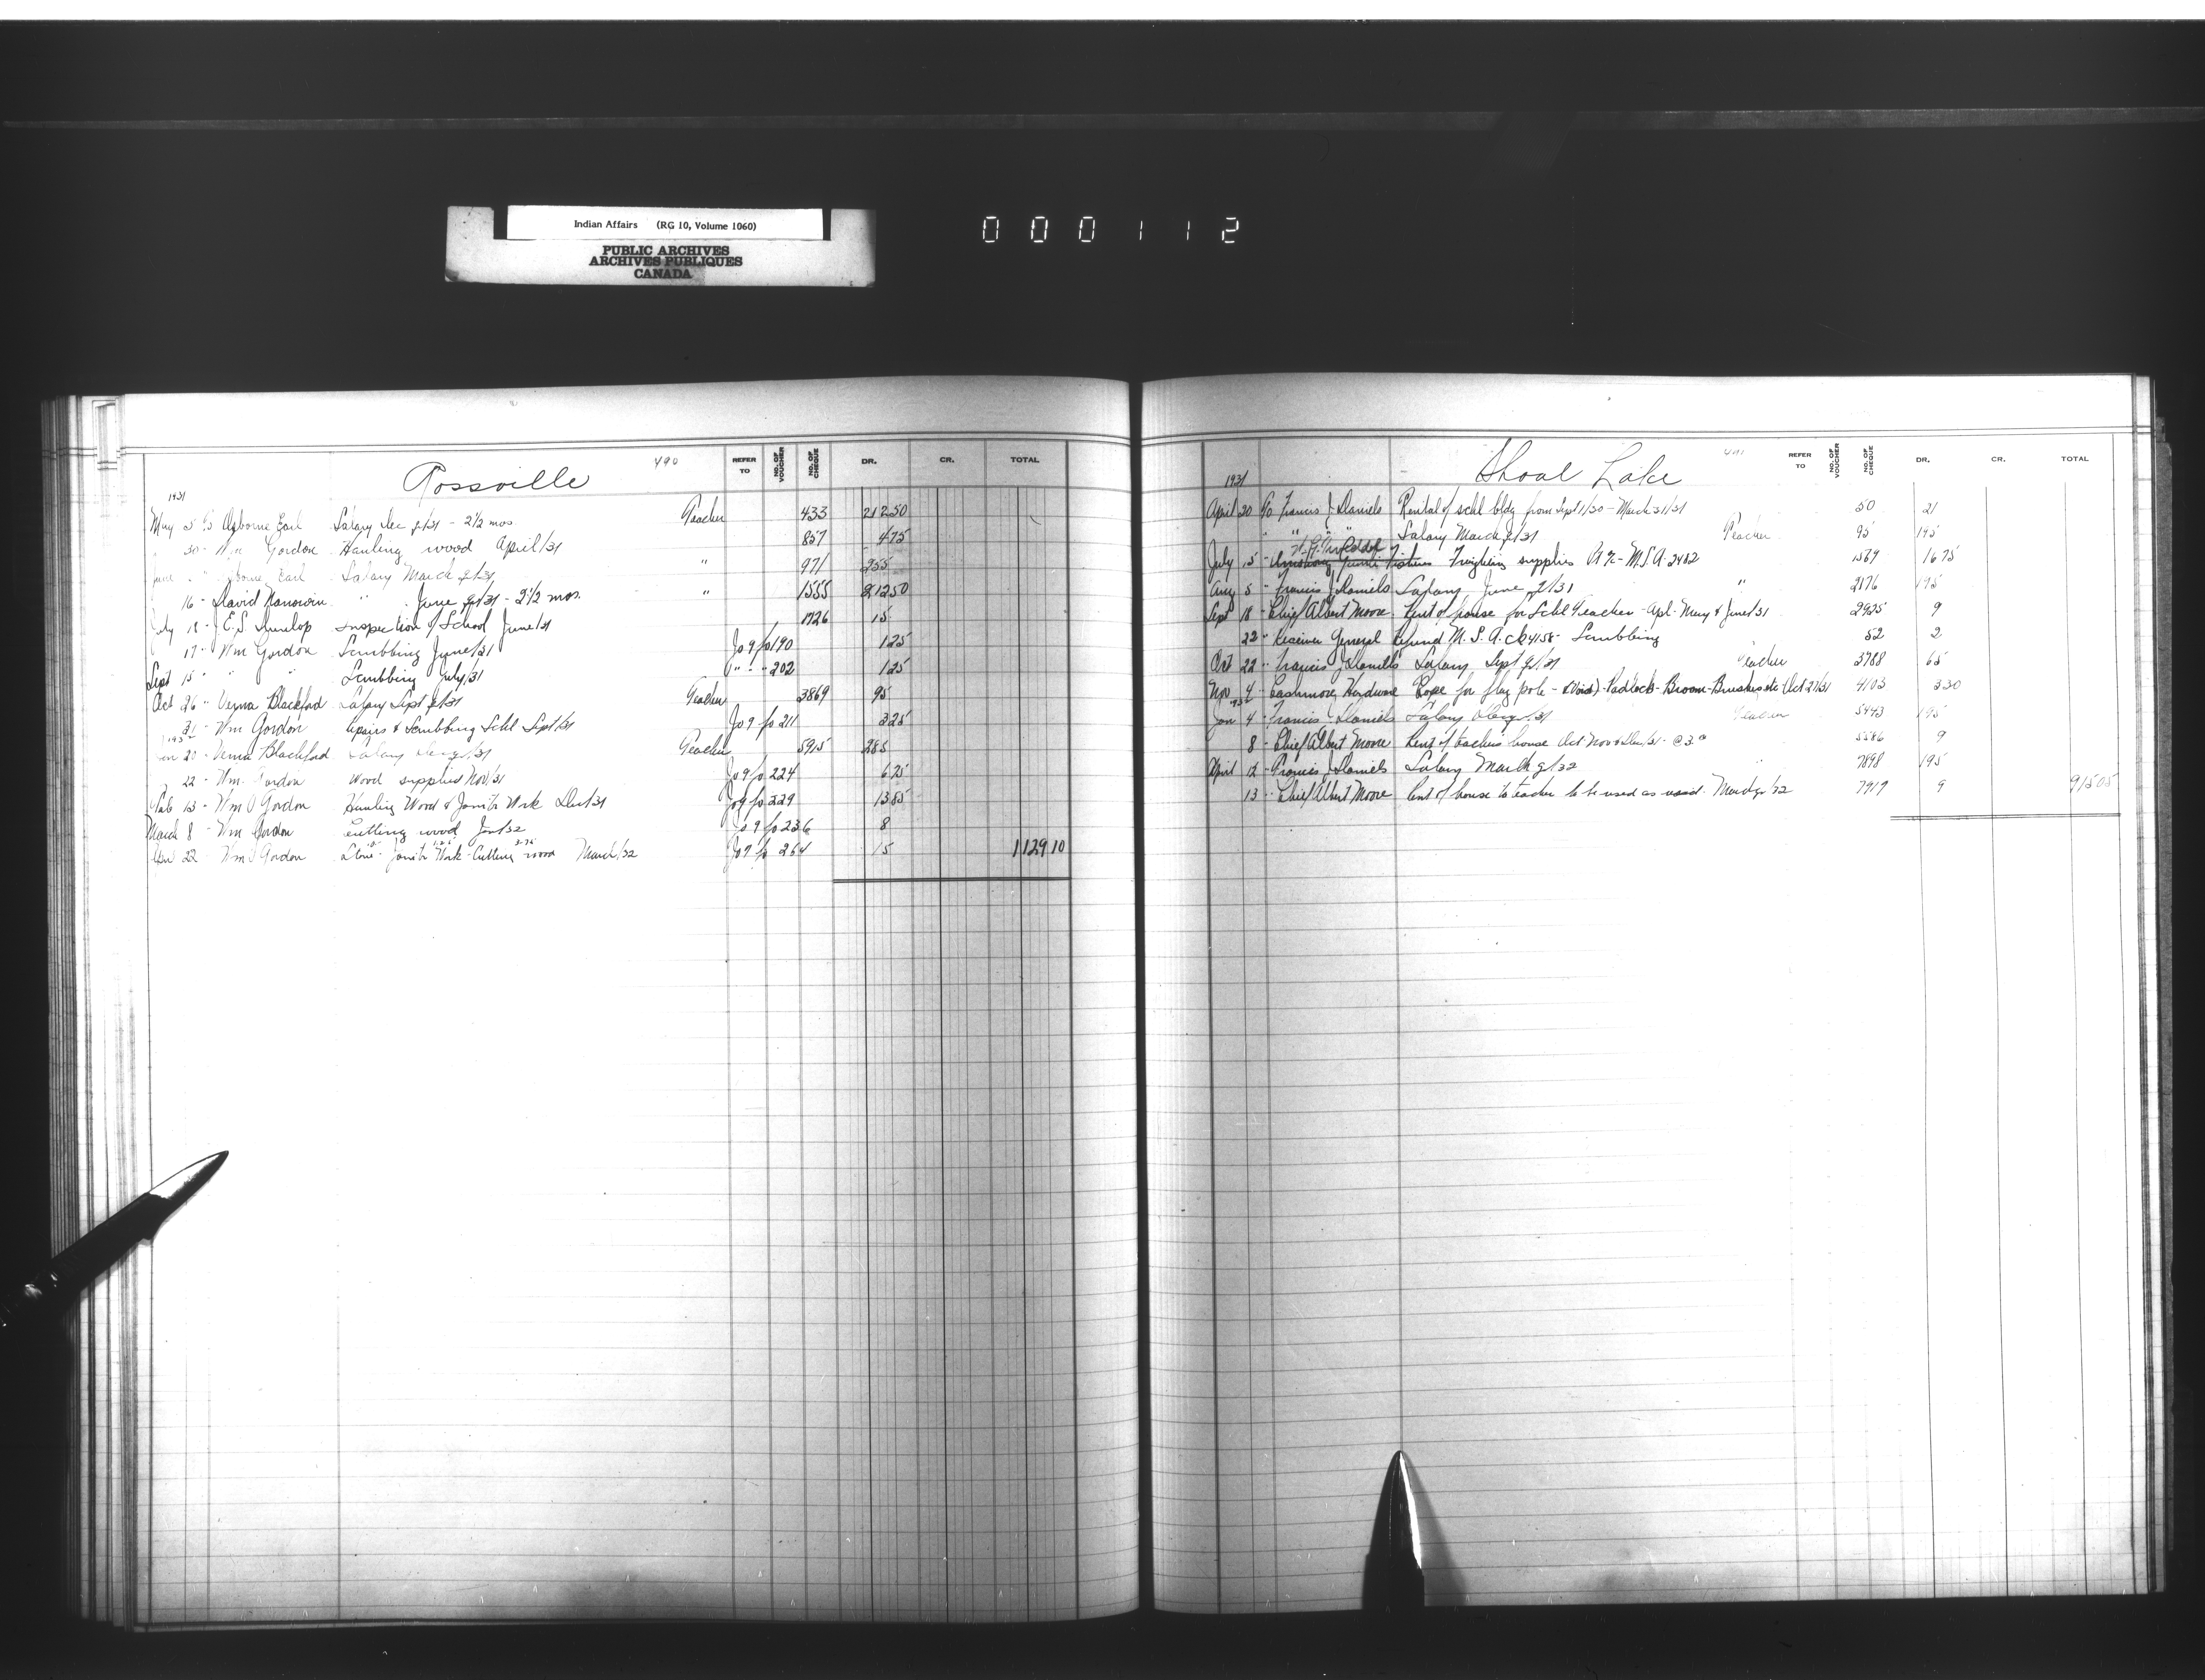 Indian Affairs (RG 10, Volume 1060)
PUBLIC ARCHIVES
ARCHIVES PUBLIQUES
CANADA
000112
Rossville 490
REFER TO NO. OF VOUCHER NO. OF CHEQUE DR. CR. TOTAL
1931
May 5 Osborne Earl Salary Dec q/31 - 2½ mos. Teacher 433 212 50
30 - Wm Gordon Hauling wood April/31 857 4 75
June " - Osborne Earl Salary March q/31 " 971 255
16 - David " June q/31 - 2½ mos. " 1555 212 50
July 18 - J.E.S. Dunlop Inspection of School June/31 1726 15
17 - Wm Gordon Scrubbing June/31 Jo 9 fo 190 1 25
Sept 15 - " " Scrubbing July/31 " " - 202 1 25
Oct 26 " Verna Blackford Salary Sept q/31 Teacher 3869 95
31 - Wm Gordon Repairs & Scrubbing Schl Sept/31 Jo 9 fo 211 3 25
1932
Jan 20 - Verna Blackford Salary Dec q/31 Teacher 5915 285
22 - Wm. Gordon Wood supplied Nov/31 Jo 9 fo 224 6 75
Feb 13 - Wm Gordon Hauling Wood & Janitor Work Dec/31 Jo 9 fo 229 13 85
March 8 - Wm Gordon Cutting wood Jan/32 Jo 9 fo 236 8
Apr 22 - Wm Gordon Janitor Work - Cutting wood March/32 Jo 9 fo 264 15 1129 10
Shoal Lake 491
REFER TO NO. OF VOUCHER NO. OF CHEQUE DR. CR. TOTAL
1931
April 20 To Francis J Daniels Rental of schl bldg from Sept 1/30 - March 31/31 50 21
" " " Salary March q/31 Teacher 95 195
July 15 " Freighting supplies A/c - M.S.A. 2482 1569 16 75
Aug 5 " Francis J Daniels Salary June q/31 " 2176 195
Sept 18 - Chief Albert Moore Rent of house for Schl Teacher - Apl - May & June/31 2925 9
22 " Receiver General Refund M.S.A. ck 4158 - Scrubbing 52 2
Oct 22 " Francis J Daniels Salary Sept q/31 Teacher 3788 65
Nov 4 - Cashmore Hardware Rope for flag pole - Padlock - Broom - Brushes etc Oct 27/31 4103 3 30
1932
Jan 4 - Francis J Daniels Salary Dec q/31 Teacher 5443 195
8 - Chief Albert Moore Rent of teachers house Oct Nov & Dec/31 - @ 3.00 5586 9
April 12 - Francis J Daniels Salary March q/32 " 7898 195
13 - Chief Albert Moore Rent of house to teacher to be used as March q/32 7919 9 915 05